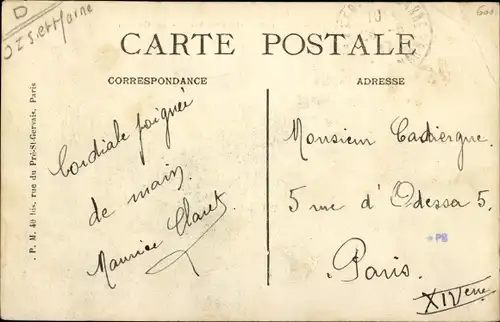 D
CARTE POSTALE
CORRESPONDANCE
ADRESSE
P. M. 49 bis, rue du Pré-St-Gervais, Paris
Cordiale poignée
de main.
Maurice Claret
Monsieur Cadiergue.
5 rue d'Odessa 5.
Paris.
XIVeme
PB